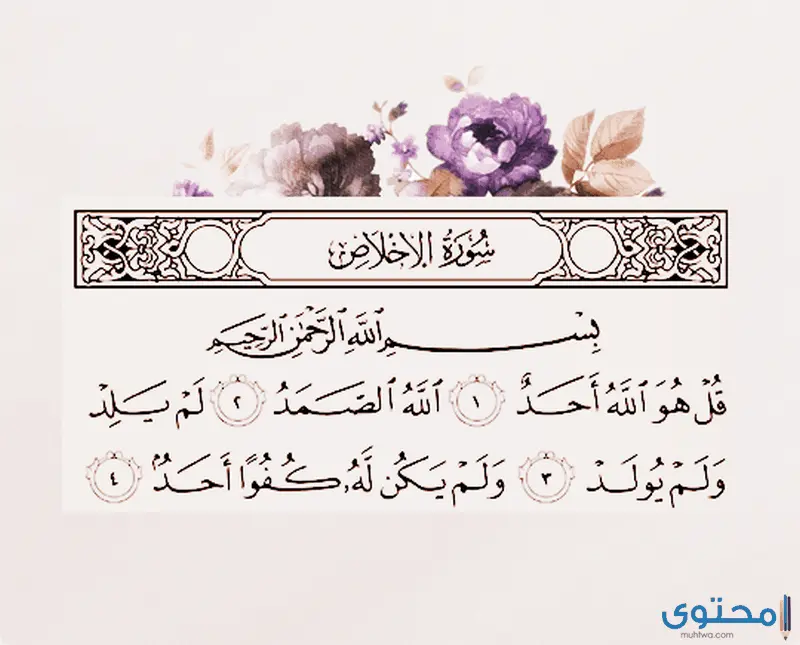 سُورَةُ الإِخْلَاصِ
بِسْمِ اللَّهِ الرَّحْمَٰنِ الرَّحِيمِ
قُلْ هُوَ اللَّهُ أَحَدٌ ١ اللَّهُ الصَّمَدُ ٢ لَمْ يَلِدْ
وَلَمْ يُولَدْ ٣ وَلَمْ يَكُن لَّهُۥ كُفُوًا أَحَدٌۢ ٤
محتوى
muhtwa.com